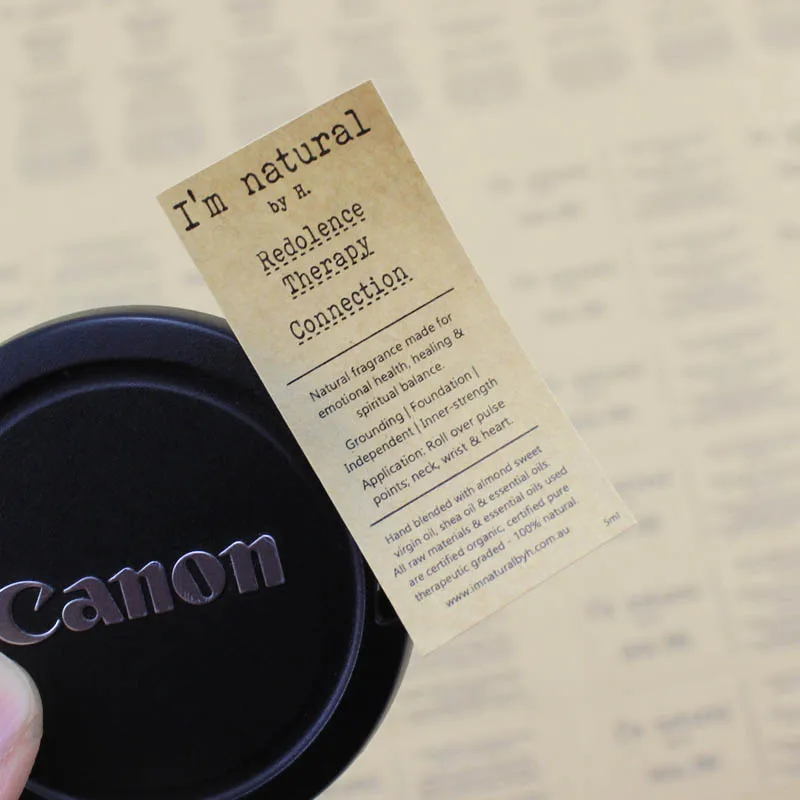 I'm natural
by H.
Redolence
Therapy
Connection
Natural fragrance made for
emotional health, healing &
spiritual balance.
Grounding | Foundation |
Independent | Inner-strength
Application: Roll over pulse
points; neck, wrist & heart.
Hand blended with almond sweet
virgin oil, shea oil & essential oils.
All raw materials & essential oils used
are certified organic, certified pure
therapeutic graded - 100% natural.
www.imnaturalbyh.com.au
5ml
Canon